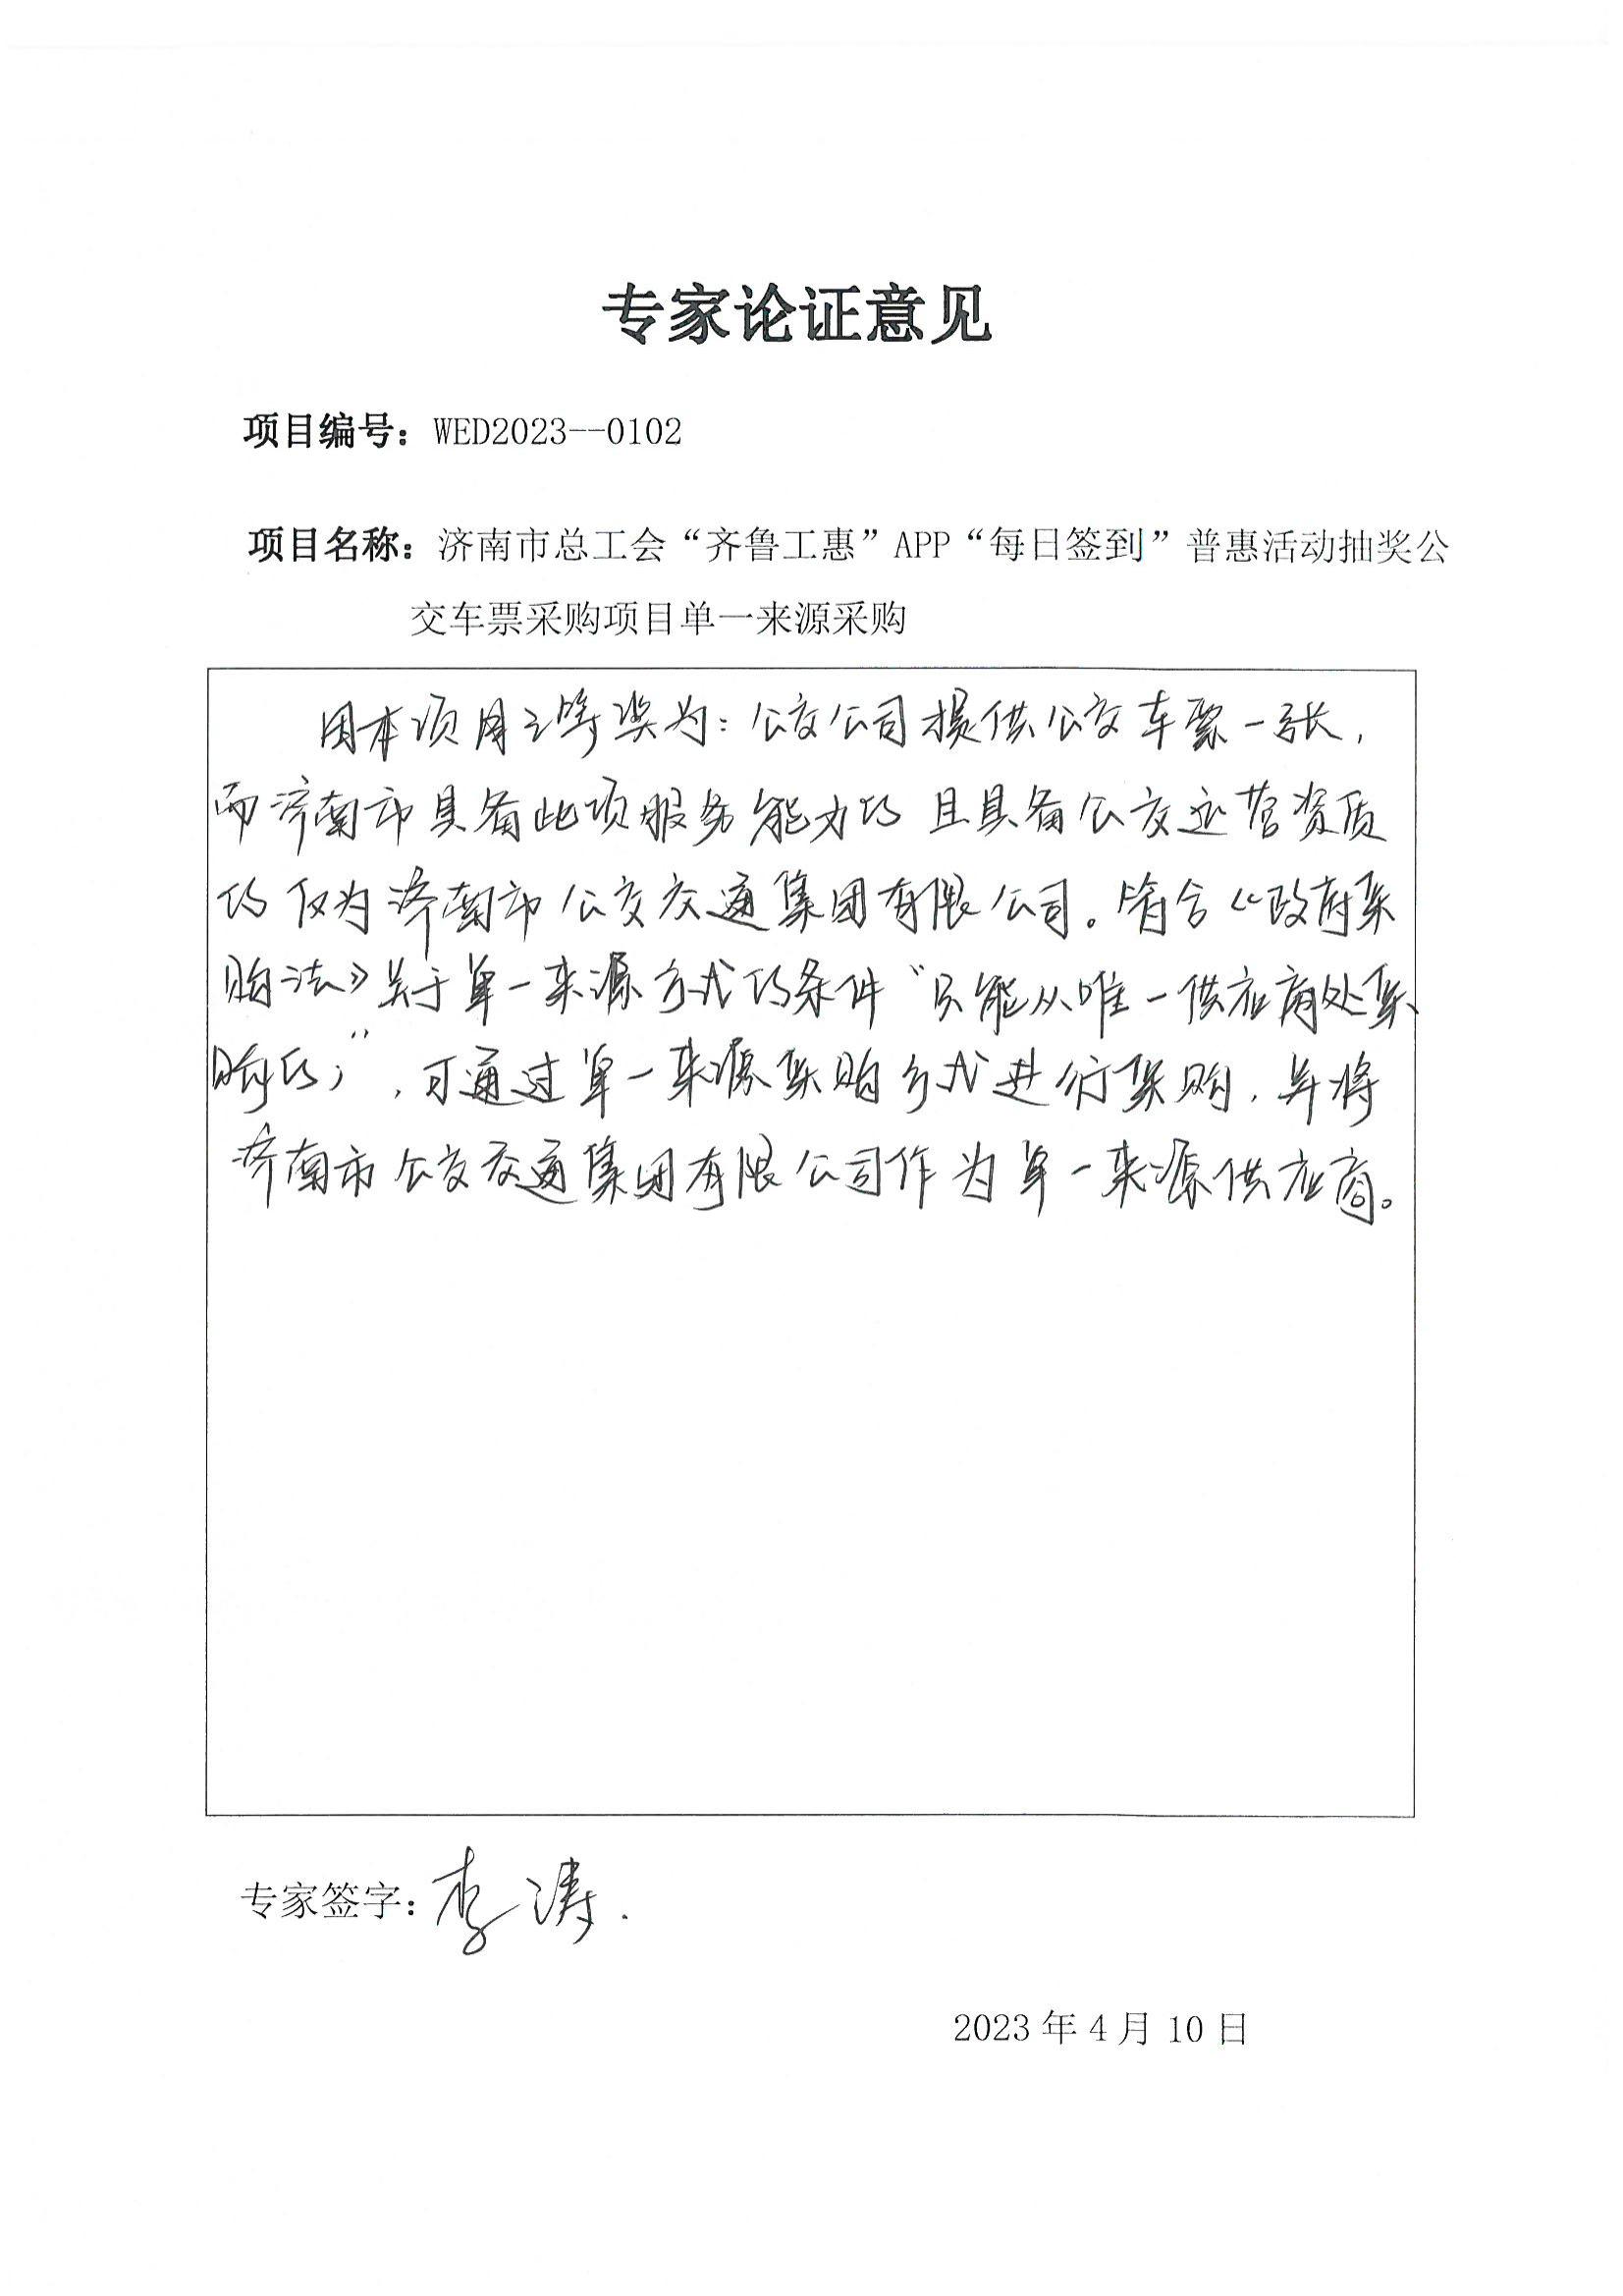 专家论证意见
项目编号：WED2023--0102
项目名称：济南市总工会“齐鲁工惠”APP“每日签到”普惠活动抽奖公
交车票采购项目单一来源采购
因本项目三等奖为：公交公司提供公交车票一张，
而济南市具备此项服务能力的且具备公交运营资质
的仅为济南市公交交通集团有限公司。符合《政府采
购法》关于单一来源方式的条件“只能从唯一供应商处采
购的；”，可通过单一来源采购方式进行采购，并将
济南市公交交通集团有限公司作为单一来源供应商。
专家签字：李涛.
2023年4月10日